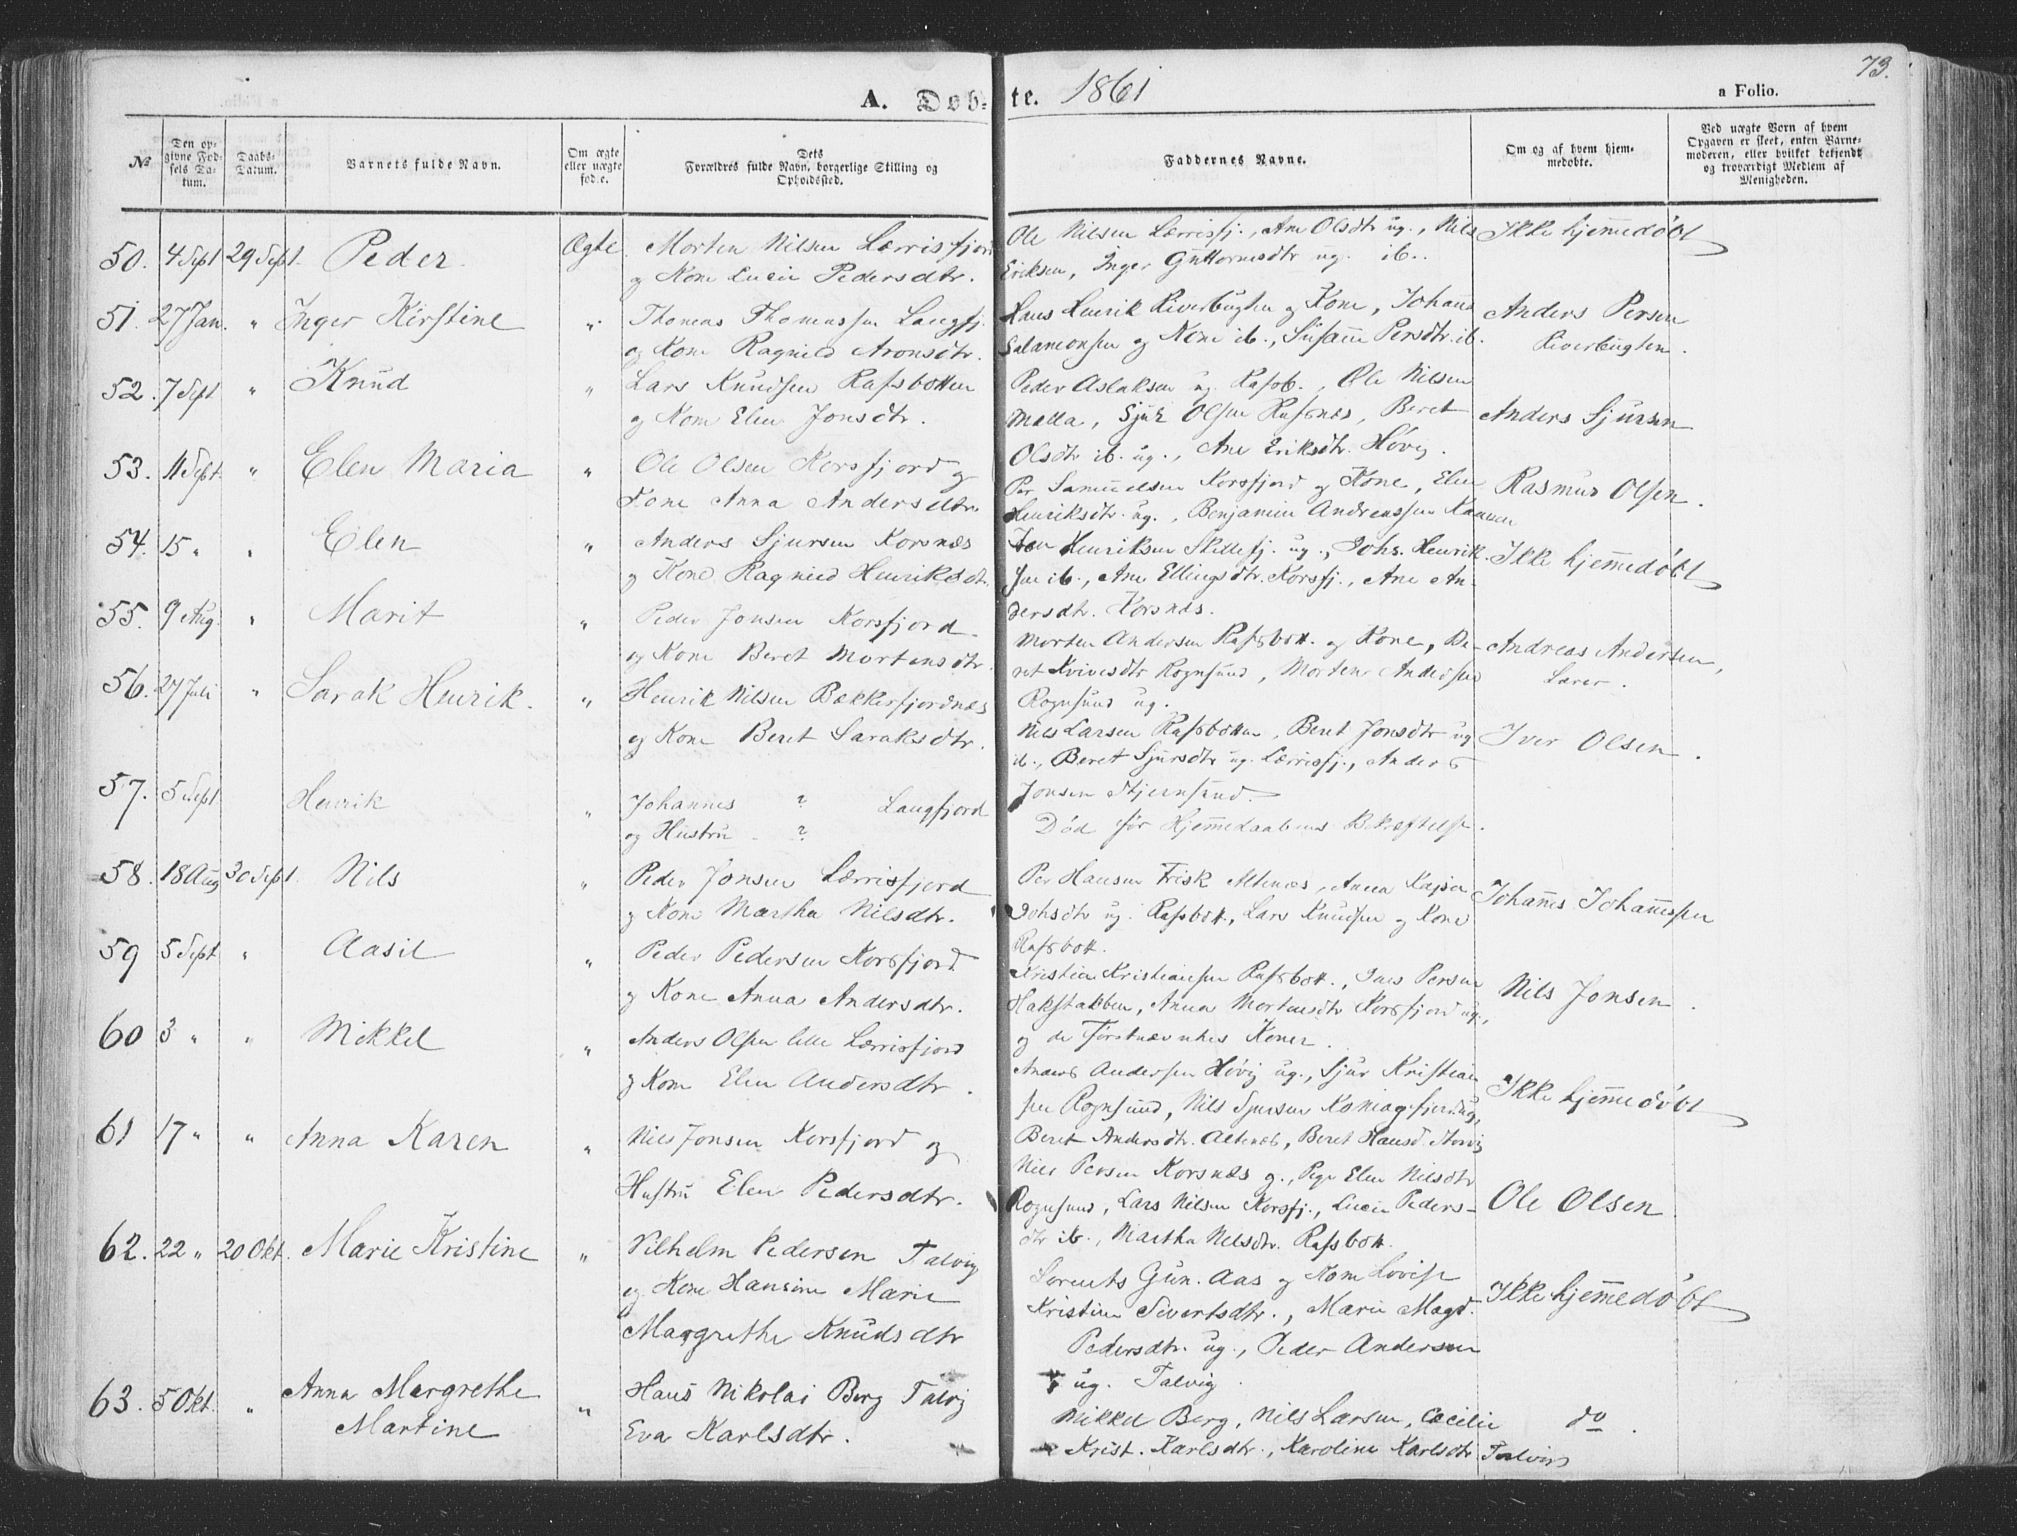 73.
A. Døb-te. 1861
a Folio.
№
Den opgivne Fødsels Datum.
Daabs-Datum.
Barnets fulde Navn.
Om ægte eller uægte fød.e.
Dets Forældres fulde Navn, borgerlige Stilling og Opholdssted.
Faddernes Navne.
Om og af hvem hjemmedøbte.
Ved uægte Born af hvem Opgaven er skeet, enten Barnemoderen, eller hvilket bekjendt og troværdigt Medlem af Menigheden.
50. 4 Sept 29 Sept. Peder Ægte. Morten Nilsen Lerrisfjord
og Kone Lucie Pedersdtr.
Ole Nilsen Lerrisfj., Ane Olsdtr ug., Nils
Eriksen, Inger Guttormsdtr ug. ib.
Ikke hjem̅edøbt
51. 27 Jan. " Inger Kirstine " Thomas Thomassen Langfj.
og Kone Ragnild Aronsdtr.
Hans Henrik Riverbugten og Kone, Johan̅s
Salamonsen og Kone ib., Susan̅e Persdtr. ib.
Anders Persen
Riverbugten.
52. 7 Sept " Knud " Lars Knudsen Rafsbotten
og Kone Elen Jonsdtr.
Peder Aslaksen ug. Rafsb., Ole Nilsen
Malla, Sjur Olsen Rafsnæs, Beret
Olsdtr ib. ug., Ane Eriksdtr. Høvig.
Anders Sjursen
53. 11 Sept. " Elen Maria " Ole Olsen Korsfjord og
Kone Anna Andersdtr.
Per Samuelsen Korsfjord og Kone, Elen
Henriksdtr. ug., Benjamin Andreassen
Rasmus Olsen.
54. 15 " " Elen " Anders Sjursen Korsnæs
og Kone Ragnild Henriksdt.
Henriksen Skillefj. ug., Johs. Henrik-
sen ib., Ane Ellingsdtr. Korsfj., Ane An-
dersdtr. Korsnæs.
Ikke hjem̅edøbt
55. 9 Aug. " Marit " Peder Jonsen Korsfjord
og Kone Beret Mortensdtr.
Morten Andersen Rafsbott. og Kone, Be-
ret Kvivesdtr Rognsund, Morten Andersen
Rognsund ug.
Andreas Andersen,
Lærer.
56. 27 Juli " Sarak Henrik. " Henrik Nilsen Bekkerfjordnæs
og Kone Beret Saraksdtr.
Nils Larsen Rafsbotten, Beret Jonsdtr ug
ib., Beret Sjursdtr ug. Lerrisfj., Anders
Jonsen Stjernsund.
Iver Olsen.
57. 5 Sept. Henrik " Johannes ? Langfjord
og Hustru ?
Død før Hjem̅edaabens Bekræftelse.
58. 18 Aug 30 Sept. Nils " Peder Jonsen Lerrisfjord
og Kone Martha Nilsdtr.
Per Hansen Frisk Altenæs, Anna Kajsa
Johsdtr ug. Rafsbott., Lars Knudsen og Kone
Rafsbott.
Johan̅es Johan̅essen
59 5 Sept " Aasil " Peder Pedersen Korsfjord
og Kone Anna Andersdtr.
Kristian Kristiansen Rafsbott., Persen
Hakstabben, Anna Mortensdtr Korsfjord ug.,
og de Førstnævntes Koner.
Nils Jonsen.
60 3 " " Mikkel " Anders Olsen lille Lerrisfjord
og Kone Elen Andersdtr.
Anders Andersen Høvig ug., Sjur Kristian
sen Rognsund, Nils Sjursen Komagfjord ug,
Beret Andersdtr. Altenæs, Beret Hansd.
Ikke hjem̅edøbt
61 17 " " Anna Karen " Nils Jonsen Korsfjord og
Hustru Elen Pedersdtr.
Nils Persen Korsnæs g., Pige Elen Nilsdtr
Rognsund, Lars Nilsen Korsfj., Lucie Peders-
dtr ib., Martha Nilsdtr. Rafsbott.
Ole Olsen
62. 22 " 20 Okt. Marie Kristine " Vilhelm Pedersen Talvig
og Kone Hansine Marie
Margrethe Knudsdtr
Lorents Gun. Aas og Kone Lovise
Kristine Sivertsdtr., Marie Magd.
Pedersdtr. ug., Peder Andersen
ug. Talvig.
Ikke hjem̅edøbt
63. 5 Okt. " Anna Margrethe
Martine
" Hans Nikolai Berg Talvig
Eva Karlsdtr.
Mikkel Berg, Nils Larsen, Cæcilie
Krist. Karlsdtr., Karoline Karlsdtr Talvig
do.